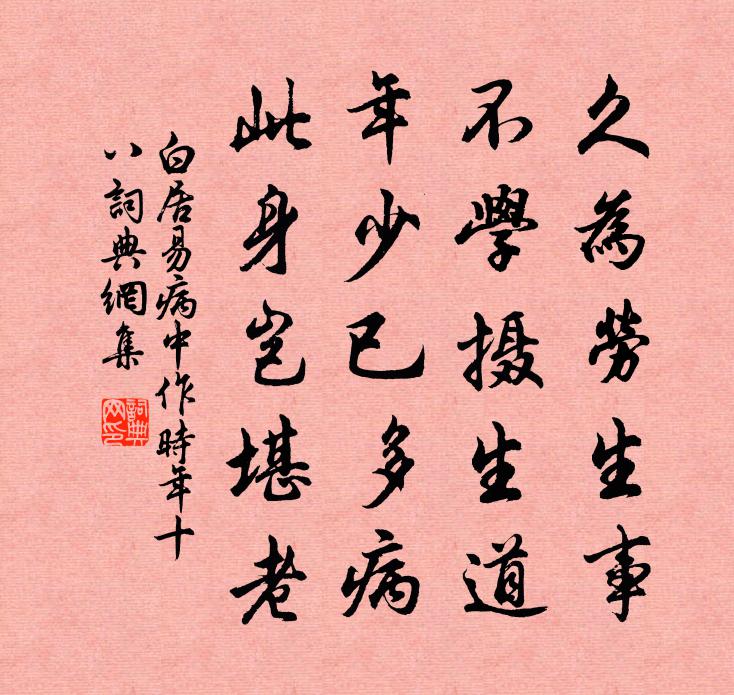 久為勞生事
不學摄生道
年少已多病
此身岂堪老
白居易病中作時年十
八詞典網集
詞典
网印